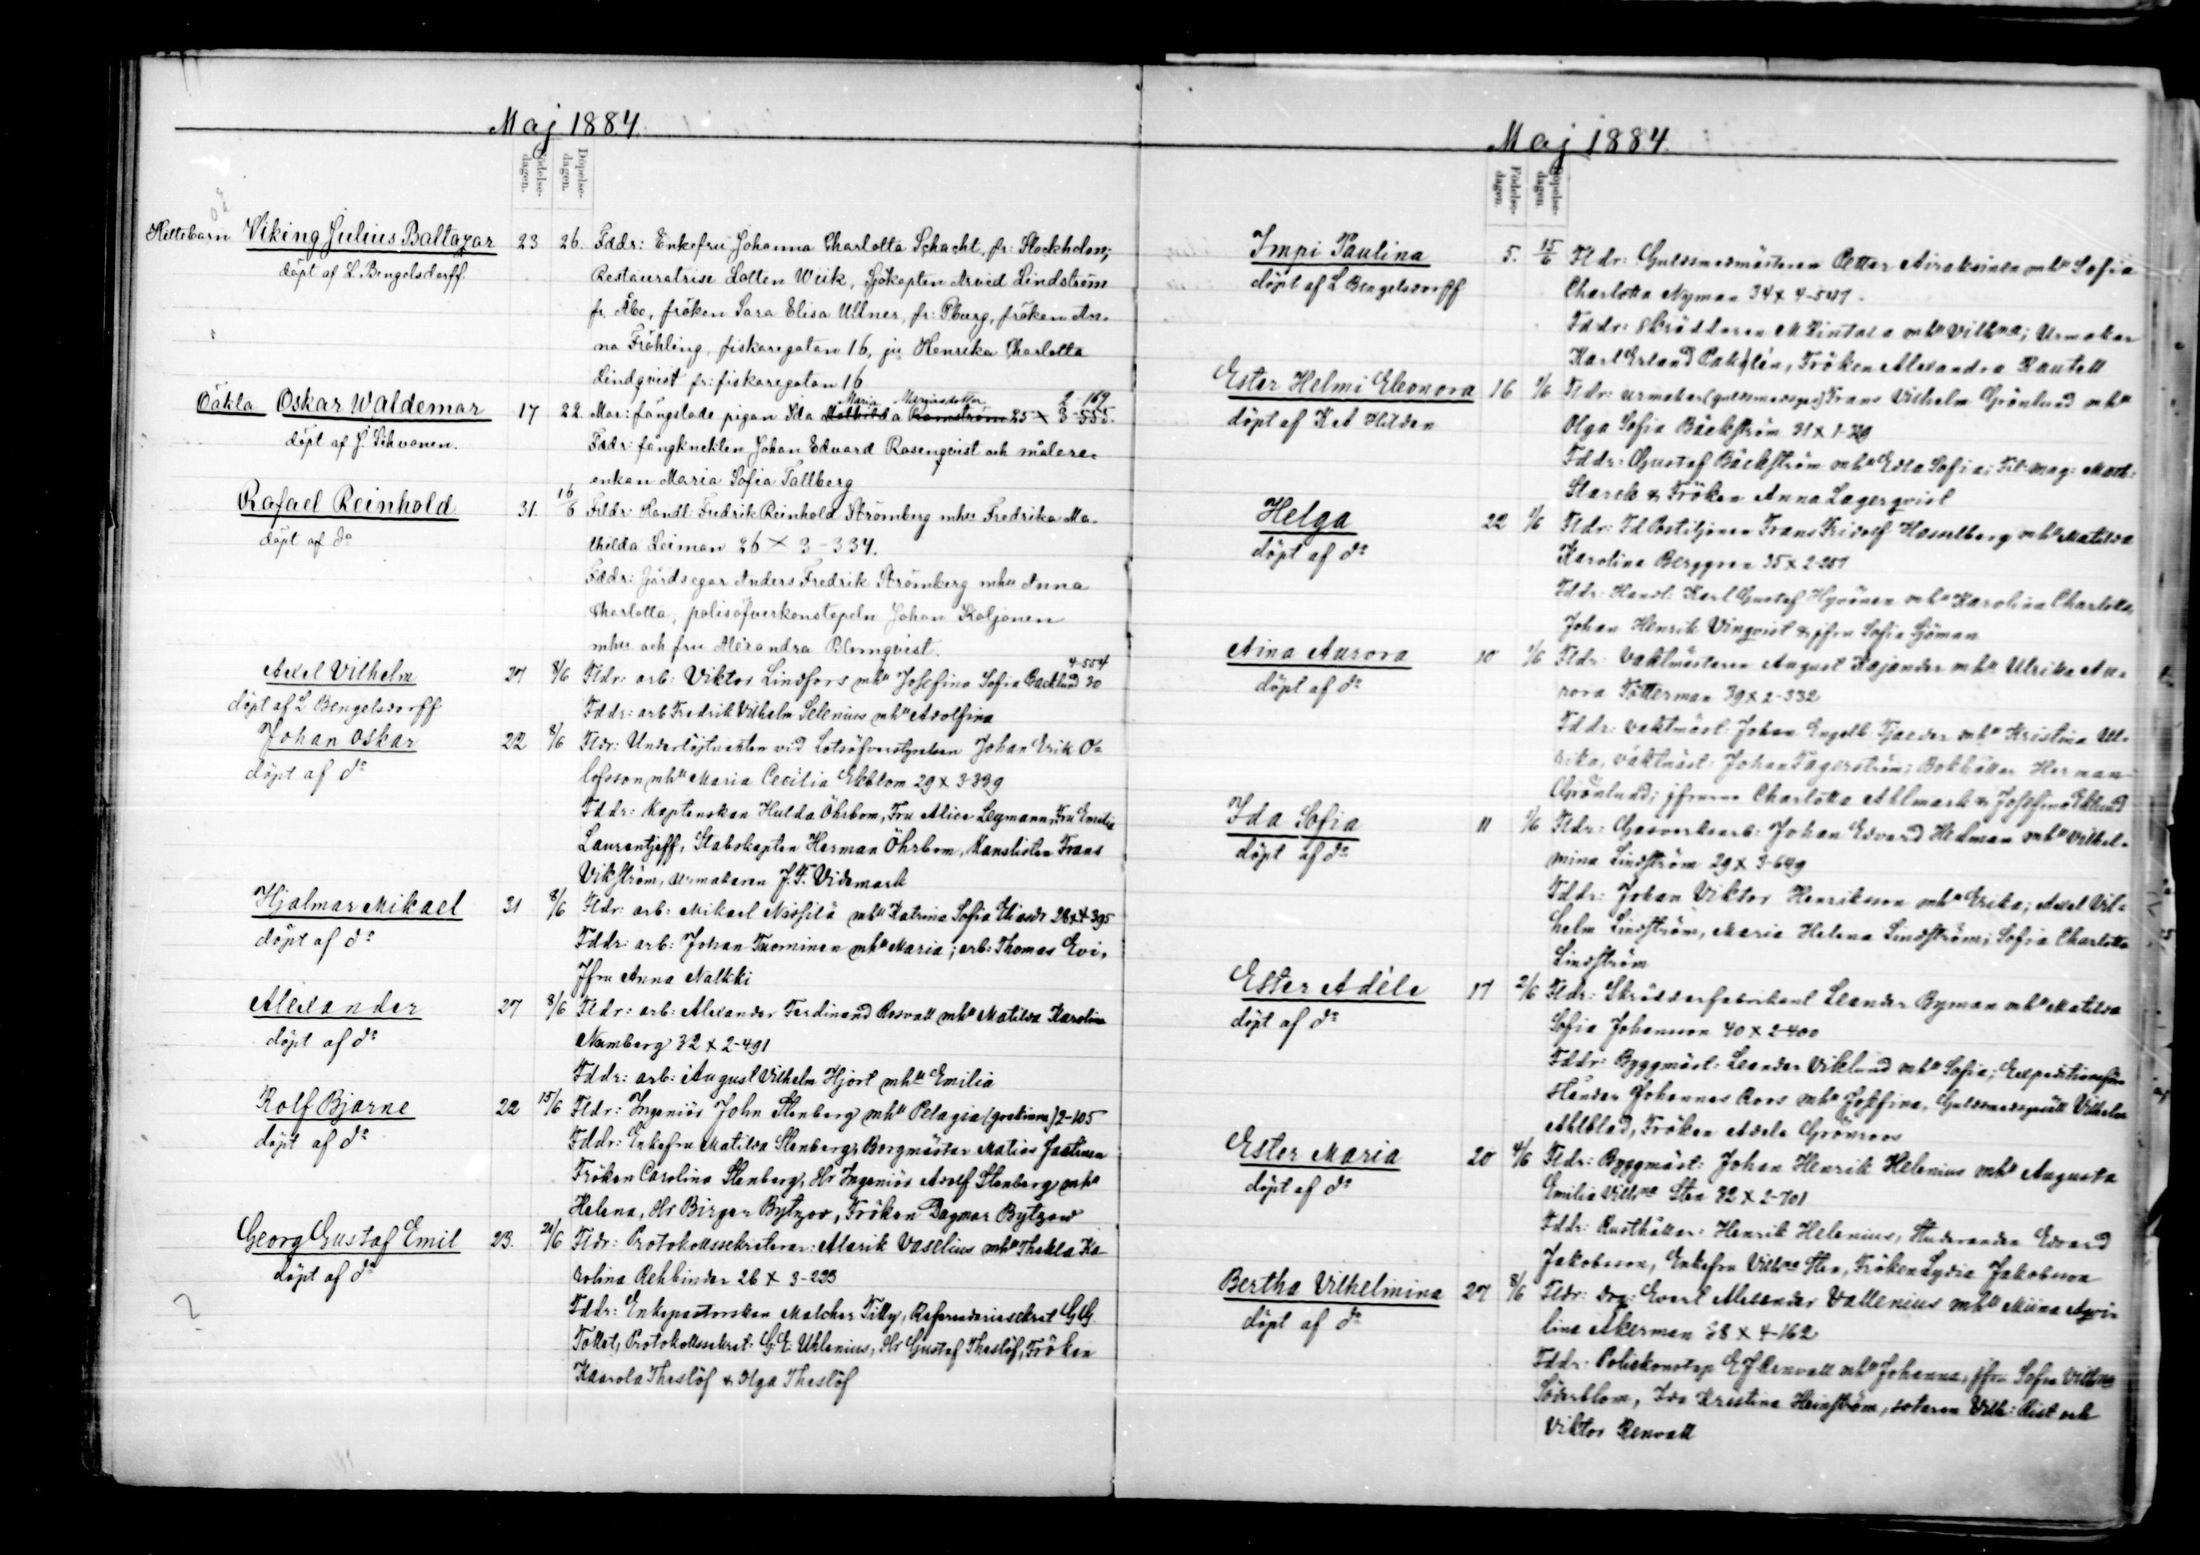 Maj 1884.
Födelse-dagen. Döpelse-dagen.
Hittebarn Viking Julius Baltazar 23 26. Fddr: Enkefru Johanna Charlotta Schacht, fr: Stockholm;
döpt af L Bengelsdorff. Restauratrise Lotten Wiik, Sjökapten Arvid Lindström
fr. Åbo, fröken Sara Elisa Ullner, fr: Pburg, fröken An-
na Fröhling, fiskaregatan 16, ju Henrika Charlotta
Lindqvist fr: fiskaregatan 16
Maria Mariasdotter 2-169
Oäkta Oskar Waldemar 17 22. Mor: fängslade pigan Ida Mathilda Ramström 25 × 3-555.
döpt af J. Sihvonen. Fddr: fångknekten Johan Edvard Rosenqvist och målare-
enkan Maria Sofia Tallberg
Rafael Reinhold 31. 16/6 Fldr: Handl: Fredrik Reinhold Strömberg mhu Fredrika Ma-
döpt af do thilda Leiman 26 × 3-334.
Fddr: Gårdsegar Anders Fredrik Strömberg mhu Anna
Charlotta, polisöfverkonstapeln Johan Koljonen
mhu och fru Alexandra Blomqvist.
4-554
Axel Vilhelm 27 8/6 Fldr: arb: Viktor Lindfors mhu Josefina Sofia Backlund 30
döpt af L Bengelsdorff Fddr: arb Fredrik Vilhelm Selenius mhu Adolfina
Johan Oskar 22 8/6 Fldr: Underlöjtnanten vid Lotsöfverstyrelsen Johan Erik O-
döpt af do lofsson mhu Maria Cecilia Ekblom 29 × 3-339
Fddr: Kaptenskan Hulda Öhrbom, Fru Alice Leymann, Fru Emilia
Laurentjeff, Stabskapten Herman Öhrbom, Kanslisten Frans
Vikström, urmakaren J. F. Videmark
Hjalmar Mikael 31 8/6 Fldr: arb: Mikael Nissilä mhu Katrina Sofia Eliasdr 26 × 4-395
döpt af do Fddr: arb: Johan Tuominen mhu Maria; arb: Thomas Evi,
Jfru Anna Nalkki
Alexander 27 8/6 Fldr: arb: Alexander Ferdinand Rosvall mhu Matilda Karolina
döpt af do Numberg 32 × 2-491
Fddr: arb: August Vilhelm Hjort mhu Emilia
Rolf Bjarne 22 15/6 Fldr: Ingeniör John Stenberg mhu Pelagia (grekinna) 2-105
döpt af do Fddr: Enkefru Matilda Stenberg, Borgmästar Matias Jastinen
Fröken Carolina Stenberg, Hr Ingeniör Adolf Stenberg mhu
Helena, Hr Birger Bytzow, Fröken Dagmar Bytzow
Georg Gustaf Emil 23. 21/6 Fldr: Protokollssekreterar: Alarik Vaselius mhu Thekla Ka-
döpt af do rolina Rehbinder 26 × 3-223
Fddr: Enkepastorskan Malcher Tilly, Referendariesekret G.G.
Tollet, Protokollssekret: G. E. Uhlenius, Hr Gustaf Theslöf, Fröken
Kaarola Theslöf & Olga Theslöf
Maj 1884.
Födelse-dagen. Döpelse-dagen.
Impi Paulina 5. 15/6 Fldr: Guldsmedmästaren Petter Airaksinen mhu Sofia
döpt af L Bengelsdorff Charlotta Nyman 34 × 4-547.
Fddr: Skräddaren M Hintala mhu Vilhma; Urmakar
Karl Erland Pahlén, Fröken Alexandra Rautell
Ester Helmi Eleonora 16 1/6 Fldr: urmakar (guldsmedsges) Frans Vilhelm Grönlund mhu
döpt af Hilden Olga Sofia Bäckström 31 × 1-29
Fddr: Gustaf Bäckström mhu Edla Sofia; Fil: mag:
Starck & Fröken Anna Lagerqvist
Helga 22 1/6 Fldr: Postiljonen Frans Fridolf Hasselberg mhu Matilda
döpt af do Karolina Berggren 35 × 2-207
Fddr: Handl: Karl Gustaf Hyvönen mhu Karolina Charlotta,
Johan Henrik Vinqvist & jfru Sofia Sjöman
Aina Aurora 10 1/6 Fldr: Vaktmästaren August Kajander mhu Ulrika Au-
döpt af do rora Tötterman 39 × 2-332
Fddr: vaktmäst: Johan Engelb Tjaeder mhu Kristina Ul-
rika, vaktmäst: Johan Fagerström; Bokhållar Herman
Grönlund; jfruna Charlotta Ahlmark & Josefina Eklund
Ida Sofia 11 1/6 Fldr: Gasverksarb: Johan Edvard Hedman mhu Vilhel-
döpt af do mina Lindström 29 × 3-649
Fddr: Johan Viktor Henriksson mhu Erika; Axel Vil-
helm Lindström, Maria Helena Lindström; Sofia Charlotta
Lindström
Ester Adéle 17 2/6 Fldr: Skräddarfabrikant Leander Byman mhu Matilda
döpt af do Sofia Johansson 40 × 2-400
Fddr: Byggmäst: Leander Viklund mhu Sofia; Expeditionsföre-
ståndar Johannes Roos mhu Josefina, Guldsmedsgesäll Vilhelm
Ahlblad, Fröken Adele Grönroos
Ester Maria 20 4/6 Fldr: Byggmäst: Johan Henrik Helenius mhu Augusta
döpt af do Emilia Vilhma Sten 32 × 2-701
Fddr: Rusthållar: Henrik Helenius, Studeranden Edvard
Jakobsson, Enkefru Vilhma Sten, Fröken Lydia Jakobsson
Bertha Vilhelmina 27 8/6 Fldr: drg: Evert Alexander Vallenius mhu Miina
döpt af do lina Akerman 28 × 4-162
Fddr: Poliskonstap E J Renvall mhu Johanna, jfru Sofia Vilhma
Söderblom, Ida Kristina Heinström, sotaren Vilh: Rist och
Viktor Renvall